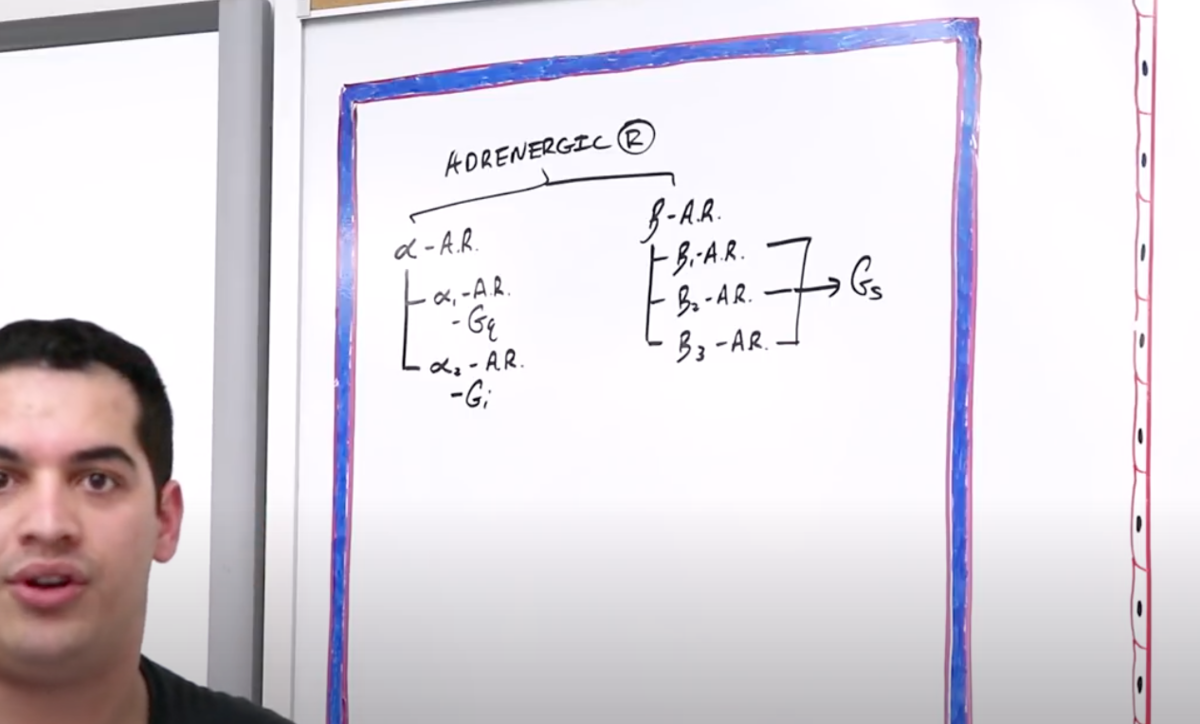 ADRENERGIC Ⓡ
α-A.R.
α₁-A.R.
-Gq
α₂-A.R.
-Gi
β-A.R.
B₁-A.R.
B₂-A.R.
B₃-A.R.
→ Gs